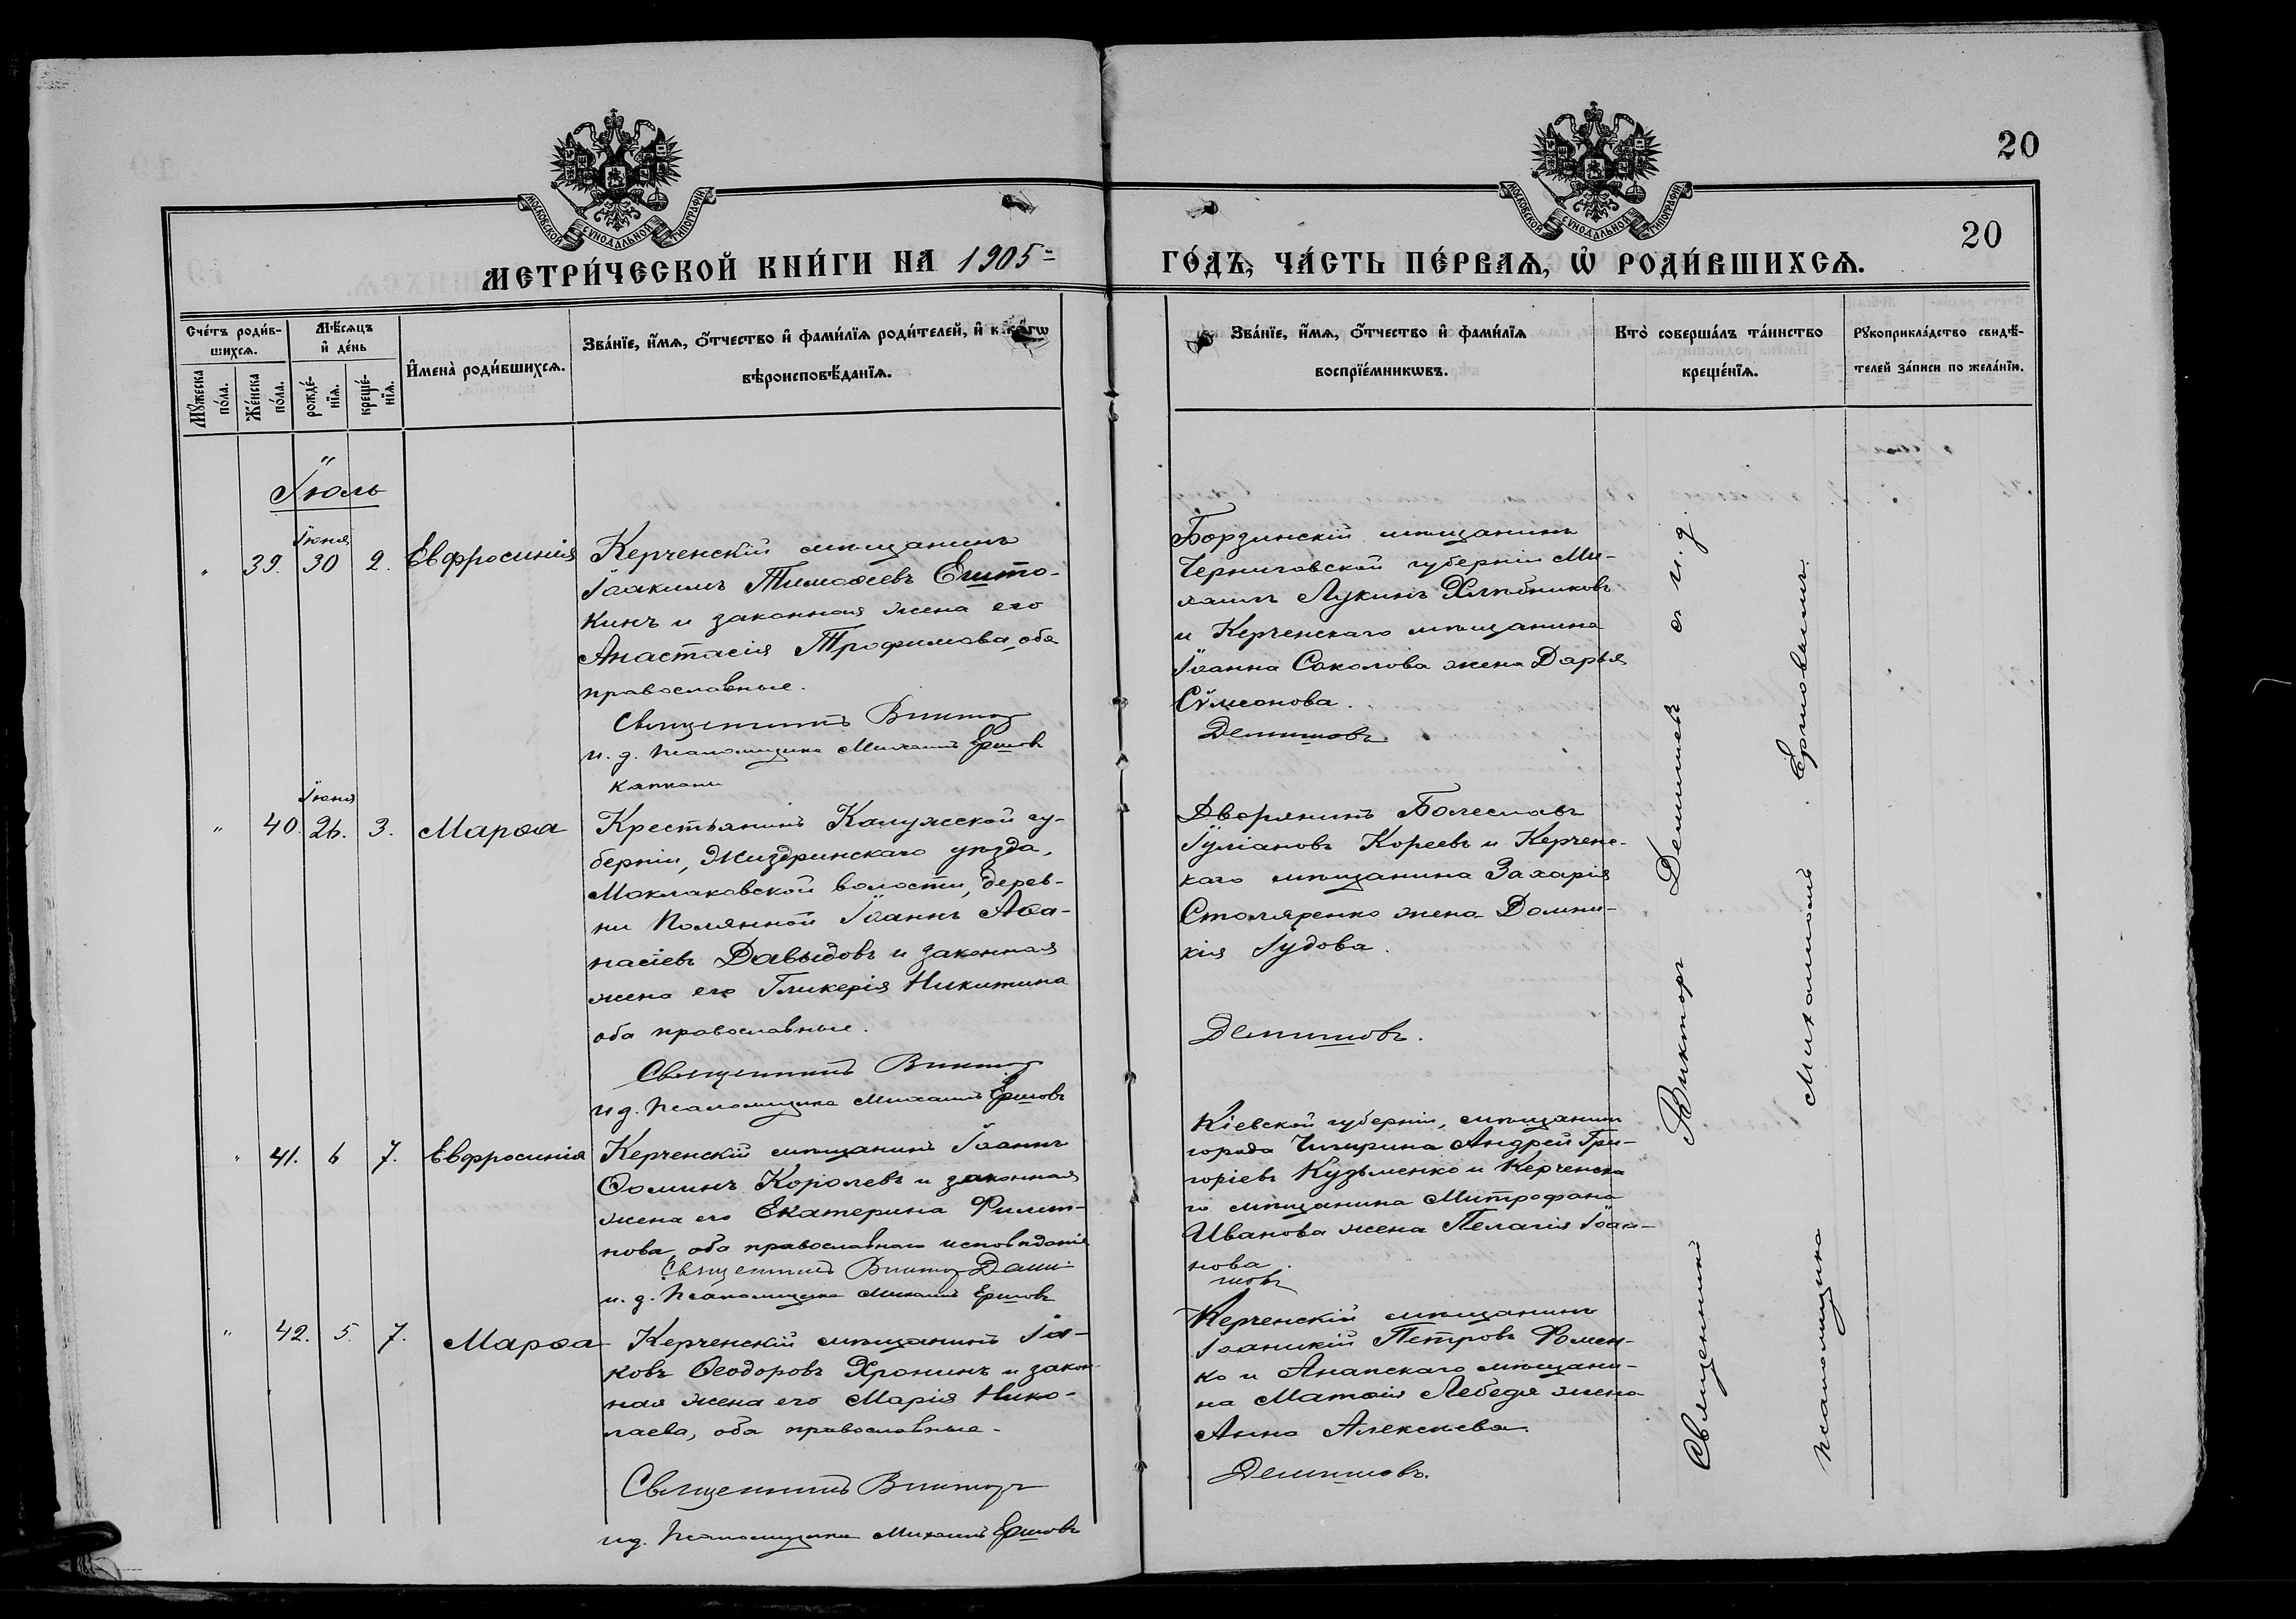 20
МОСКОВСКОЙ СѴНОДАЛЬНОЙ ТИПОГРАФІИ
МОСКОВСКОЙ СѴНОДАЛЬНОЙ ТИПОГРАФІИ
20
МЕТРИ́ЧЕСКОЙ КНИ́ГИ НА 1905
ГО́ДЪ, ЧА́СТЬ ПЕ́РВАѦ, Ѡ҆ РОДИ́ВШИХСѦ.
Сче́тъ роди́в-
шихсѧ.
Мꙋ́жеска по́ла.
Же́нска по́ла.
Мѣ́сѧцъ и҆ де́нь
рожде́-нїѧ.
креще́-нїѧ.
И҆мена̀ роди́вшихсѧ.
Зва́нїе, и҆́мѧ, ѻ҆́тчество и҆ фами́лїѧ роди́телей, и҆ како́гѡ
вѣроисповѣ́данїѧ.
Зва́нїе, и҆́мѧ, ѻ҆́тчество и҆ фами́лїѧ
воспрїе́мникѡвъ.
Кто̀ соверша́лъ та́инство
креще́нїѧ.
Рꙋкоприкла́дство свидѣ́-
телей за́писи по жела́нїю.
Іюль
Іюня
" 39. 30 2. Евфросинія
Керченскій мѣщанинъ
Іоакимъ Тимоѳеевъ Ешто-
кинъ и законная жена его
Анастасія Трофимова, оба
православные.
Священникъ Викторъ
и. д. псаломщика Михаилъ Ершовъ
Борзинскій мѣщанинъ
Черниговской губерніи Ми-
хаилъ Лукинъ Хлѣбниковъ
и Керченскаго мѣщанина
Іоанна Соколова жена Дарья
Сѵмеонова.
Іюня
" 40. 26. 3. Марѳа
Крестьянинъ Калужской гу-
берніи, Жиздринскаго уѣзда,
Маклаковской волости, дерев-
ни Полянной Іоаннъ Аѳа-
насіевъ Давыдовъ и законная
жена его Гликерія Никитина
оба православные.
Священникъ Викторъ
и д. псаломщика Михаилъ Ершовъ
Дворянинъ Болеславъ
Іуліановъ Кореевъ и Керченс-
каго мѣщанина Захарія
Столяренко жена Домни-
кія Іудова.
" 41. 6 7. Евфросинія
Керченскій мѣщанинъ Іоаннъ
Ѳоминъ Королевъ и законная
жена его Екатерина Филип-
пова, оба православнаго исповѣданія
Священникъ Викторъ
и. д. псаломщика Михаилъ Ершовъ
Кіевской губерніи, мѣщанинъ
города Чигирина Андрей Гри-
горіевъ Кузьменко и Керченска
го мѣщанина Митрофана
Иванова жена Пелагія Іоан-
нова.
" 42. 5. 7. Марѳа
Керченскій мѣщанинъ Іа-
ковъ Ѳеодоровъ Хронинъ и закон-
ная жена его Марія Нико-
лаева, оба православные.
Священникъ Викторъ
и д. псаломщика Михаилъ Ершовъ
Керченскій мѣщанинъ
Іоаникій Петровъ Фомен-
ко и Анапскаго мѣщани-
на Матѳія Лебедя жена
Анна Алексѣева.
Священникъ Викторъ съ и. д.
псаломщика Михаиломъ Ершовымъ.